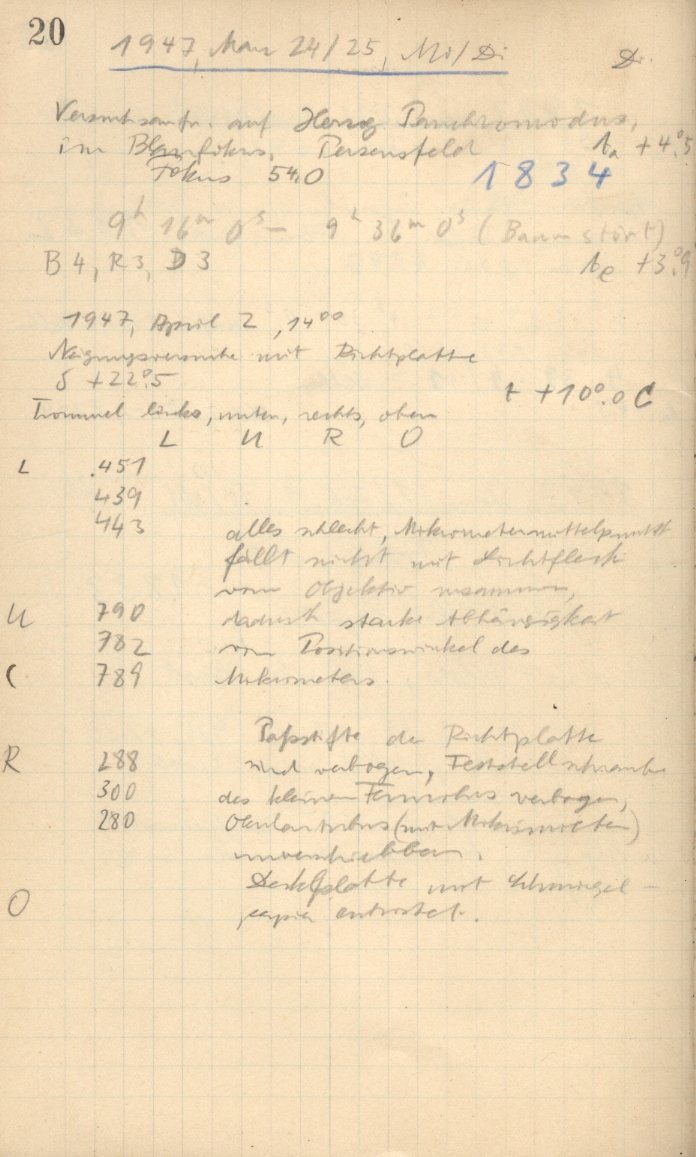 20
1947, März 24/25, Mo/Di Di.
Versuchsaufn. auf Herzog Panchromodus,
im Blaufokus. Persensfeld ta +4°.5
Fokus 54,0 1834
9h 16m 0s – 9h 36m 0s (Baum stört)
B4, R3, D3 te +3°.9
1947, April 2, 14 00
Neigungsversuche mit Richtplatte
δ +22°.5 t +10°.0 C
Trommel links, unten, rechts, oben
L U R O
L .451
439
443 alles schlecht, Mikrometermittelpunkt
fällt nicht mit Lichtfleck
vom Objektiv zusammen,
U 790 dadurch starke Abhängigkeit
782 vom Positionswinkel des
( 789 Mikrometers.
Paßstifte der Richtplatte
R 288 sind verbogen, Feststellschraube
300 des kleinen Fernrohrs verbogen,
280 Okulartubus (mit Mikrometer)
unverschiebbar.
Deckplatte mit Schmirgel-
O papier entrostet.